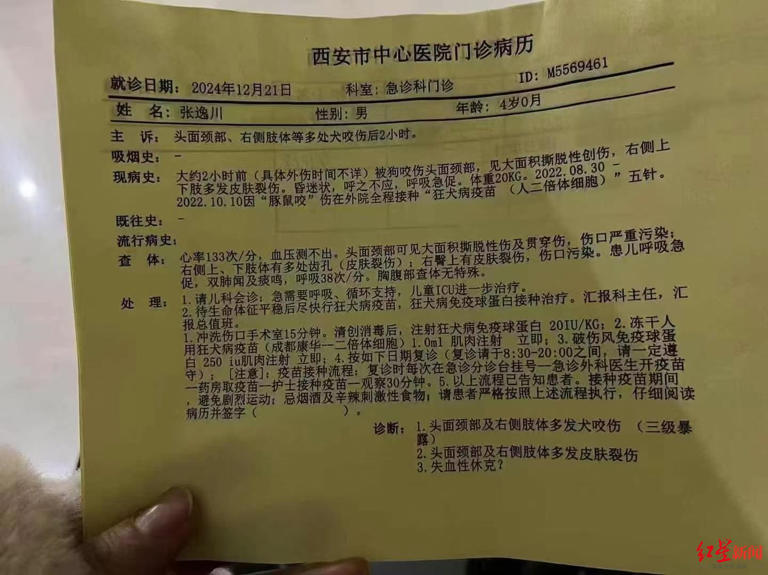 西安市中心医院门诊病历
就诊日期： 2024年12月21日 科室：急诊科门诊 ID：M5569461
姓 名：张逸川 性别：男 年龄：4岁0月
主 诉： 头面颈部、右侧肢体等多处犬咬伤后2小时。
吸烟史： -
现病史： 大约2小时前（具体外伤时间不详）被狗咬伤头面颈部，见大面积撕脱性创伤，右侧上
下肢多发皮肤裂伤。昏迷状，呼之不应，呼吸急促。体重20KG。2022.08.30 -
2022.10.10因“豚鼠咬”伤在外院全程接种“狂犬病疫苗 （人二倍体细胞）”五针。
既往史： -
流行病史：
查 体： 心率133次/分，血压测不出。头面颈部可见大面积撕脱性伤及贯穿伤，伤口严重污染；
右侧上、下肢体有多处齿孔（皮肤裂伤）；右臀上有皮肤裂伤，伤口污染。患儿呼吸急
促，双肺闻及痰鸣，呼吸38次/分。胸腹部查体无特殊。
处 理： 1.请儿科会诊：急需要呼吸、循环支持，儿童ICU进一步治疗。
2.待生命体征平稳后尽快行狂犬病疫苗，狂犬病免疫球蛋白接种治疗。汇报科主任，汇
报总值班。
1.冲洗伤口手术室15分钟。清创消毒后，注射狂犬病免疫球蛋白 20IU/KG；2.冻干人
用狂犬病疫苗（成都康华--二倍体细胞）1.0ml 肌肉注射 立即；3.破伤风免疫球蛋
白 250 iu肌肉注射 立即；4.按如下日期复诊（复诊请于8:30-20:00之间，请一定遵
守）；[注意]：疫苗接种流程：复诊时每次在急诊分诊台挂号—急诊外科医生开疫苗
—药房取疫苗—护士接种疫苗—观察30分钟。5.以上流程已告知患者。接种疫苗期间
，避免剧烈运动；忌烟酒及辛辣刺激性食物；请患者严格按照上述流程执行，仔细阅读
病历并签字（ ）。
诊断： 1.头面颈部及右侧肢体多发犬咬伤 （三级暴
露）
2.头面颈部及右侧肢体多发皮肤裂伤
3.失血性休克？
红星新闻